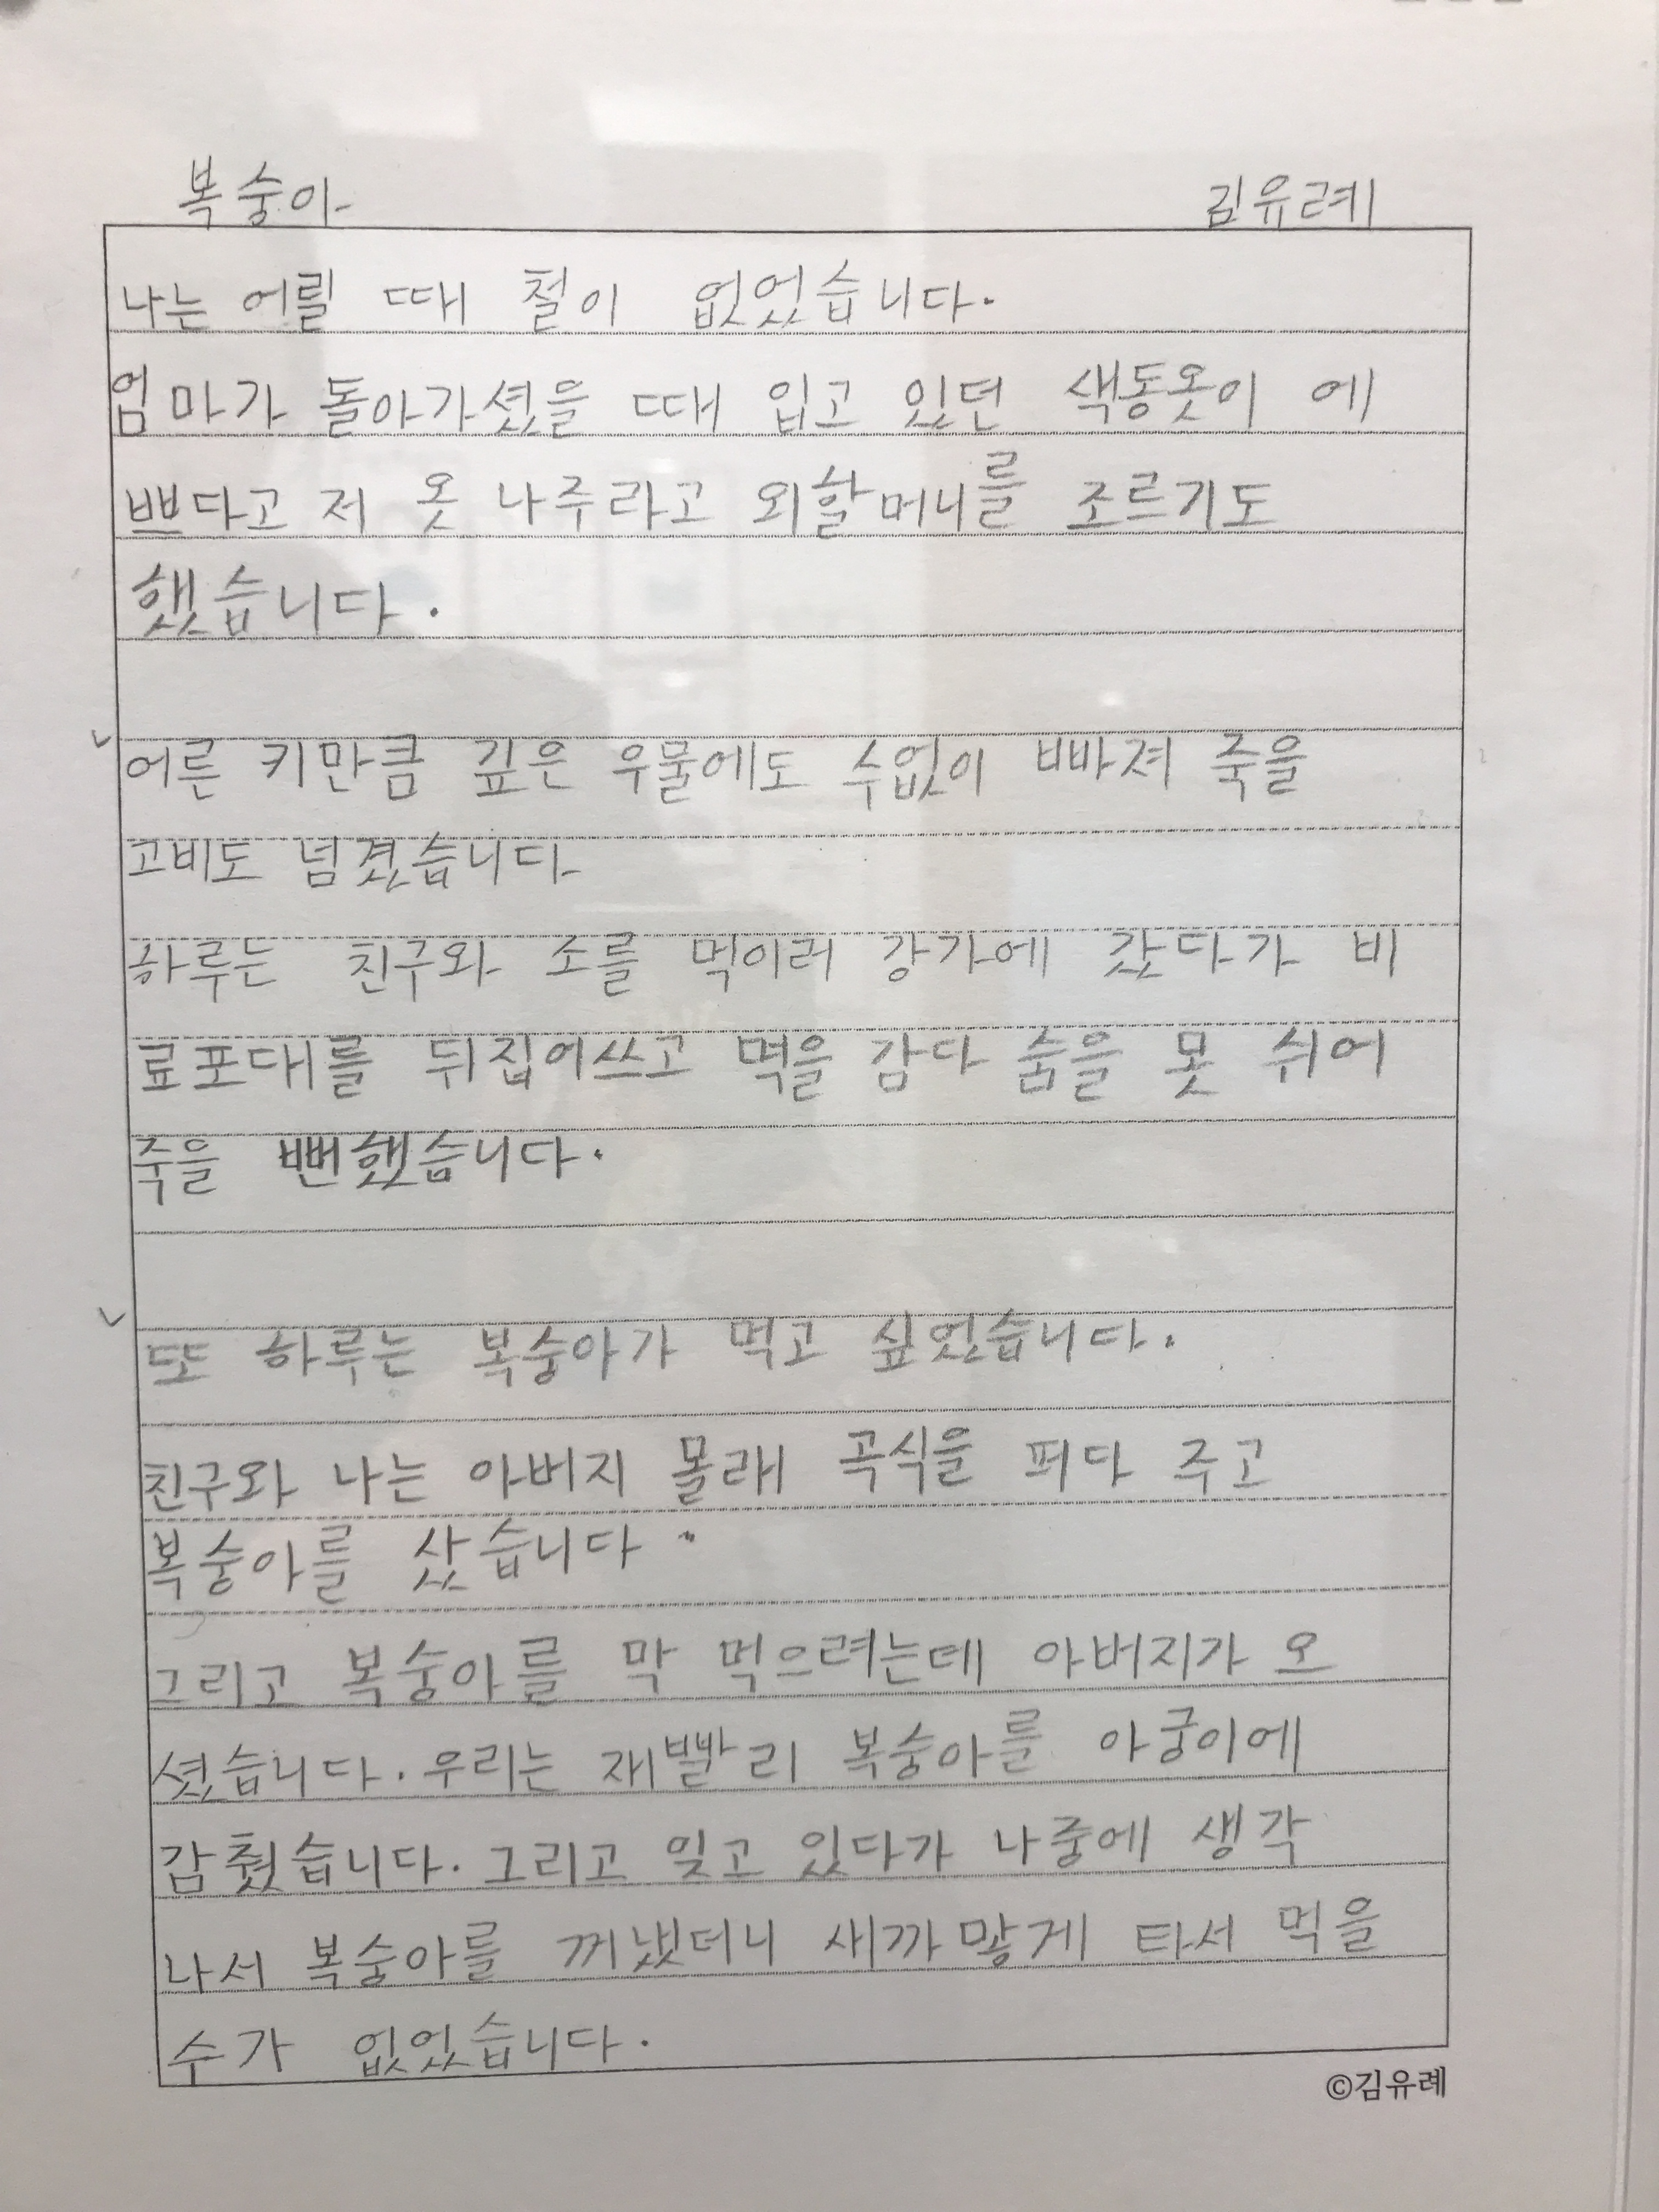 복숭아 김유례
나는 어릴 때 철이 없었습니다.
엄마가 돌아가셨을 때 입고 있던 색동옷이 예
쁘다고 저 옷 나주라고 외할머니를 조르기도
했습니다.
어른 키만큼 깊은 우물에도 수없이 빠져 죽을
고비도 넘겼습니다
하루는 친구와 소를 먹이러 강가에 갔다가 비
료포대를 뒤집어쓰고 멱을 감다 숨을 못 쉬어
죽을 뻔했습니다.
또 하루는 복숭아가 먹고 싶었습니다.
친구와 나는 아버지 몰래 곡식을 퍼다 주고
복숭아를 샀습니다.
그리고 복숭아를 막 먹으려는데 아버지가 오
셨습니다. 우리는 재빨리 복숭아를 아궁이에
감췄습니다. 그리고 잊고 있다가 나중에 생각
나서 복숭아를 꺼냈더니 새까맣게 타서 먹을
수가 없었습니다.
©김유례